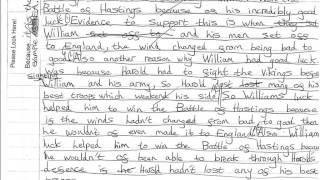 Battle of Hastings because of his incredibly good
luck. Evidence to support this is when
William set off to and his men set off
to England, the wind changed from being bad to
good. Also another reason why William had good luck
was because Harold had to fight the Vikings before
William and his army, so Harold lost many of his
best troops which weakend his side. So Williams' luck
helped him to win the Battle of Hastings because
is the winds hadn't changed from bad to good then
he wouldn't of even made it to England. Also William
luck helped him to win the Battle of Hastings because
he wouldn't of been able to break through Harolds
defence is he hadn't lost any of his best
Please Leave Margin